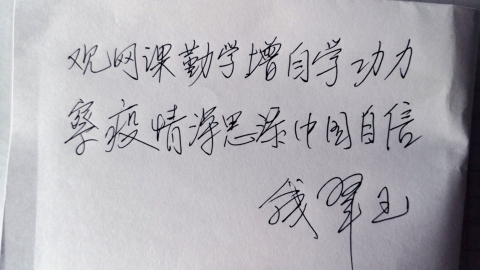 观网课勤学增自学功力
察疫情深思添中国自信
钱翠玉